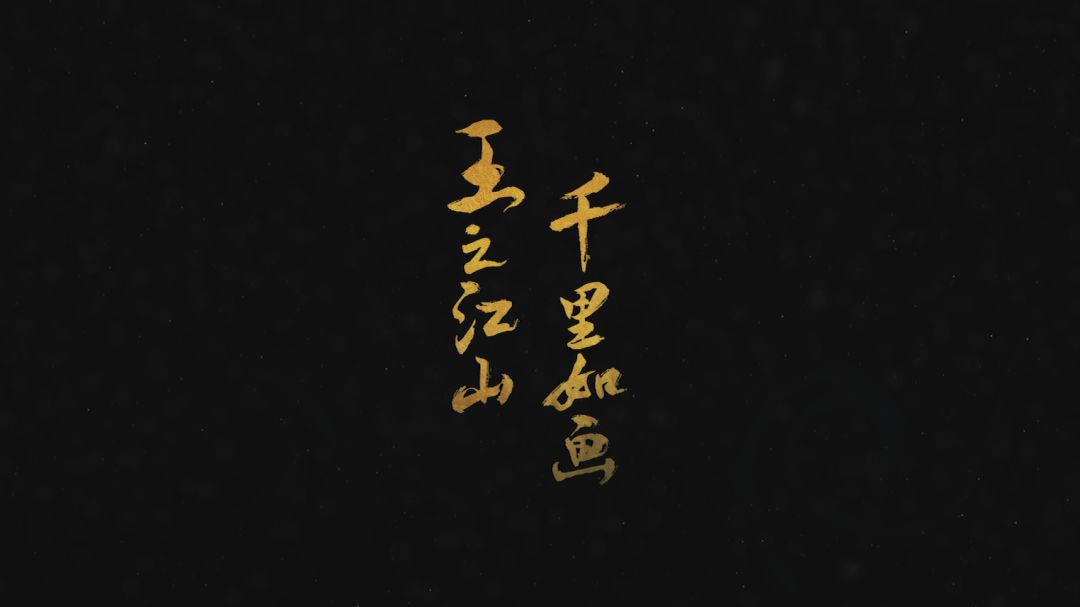 王之江山
千里如画